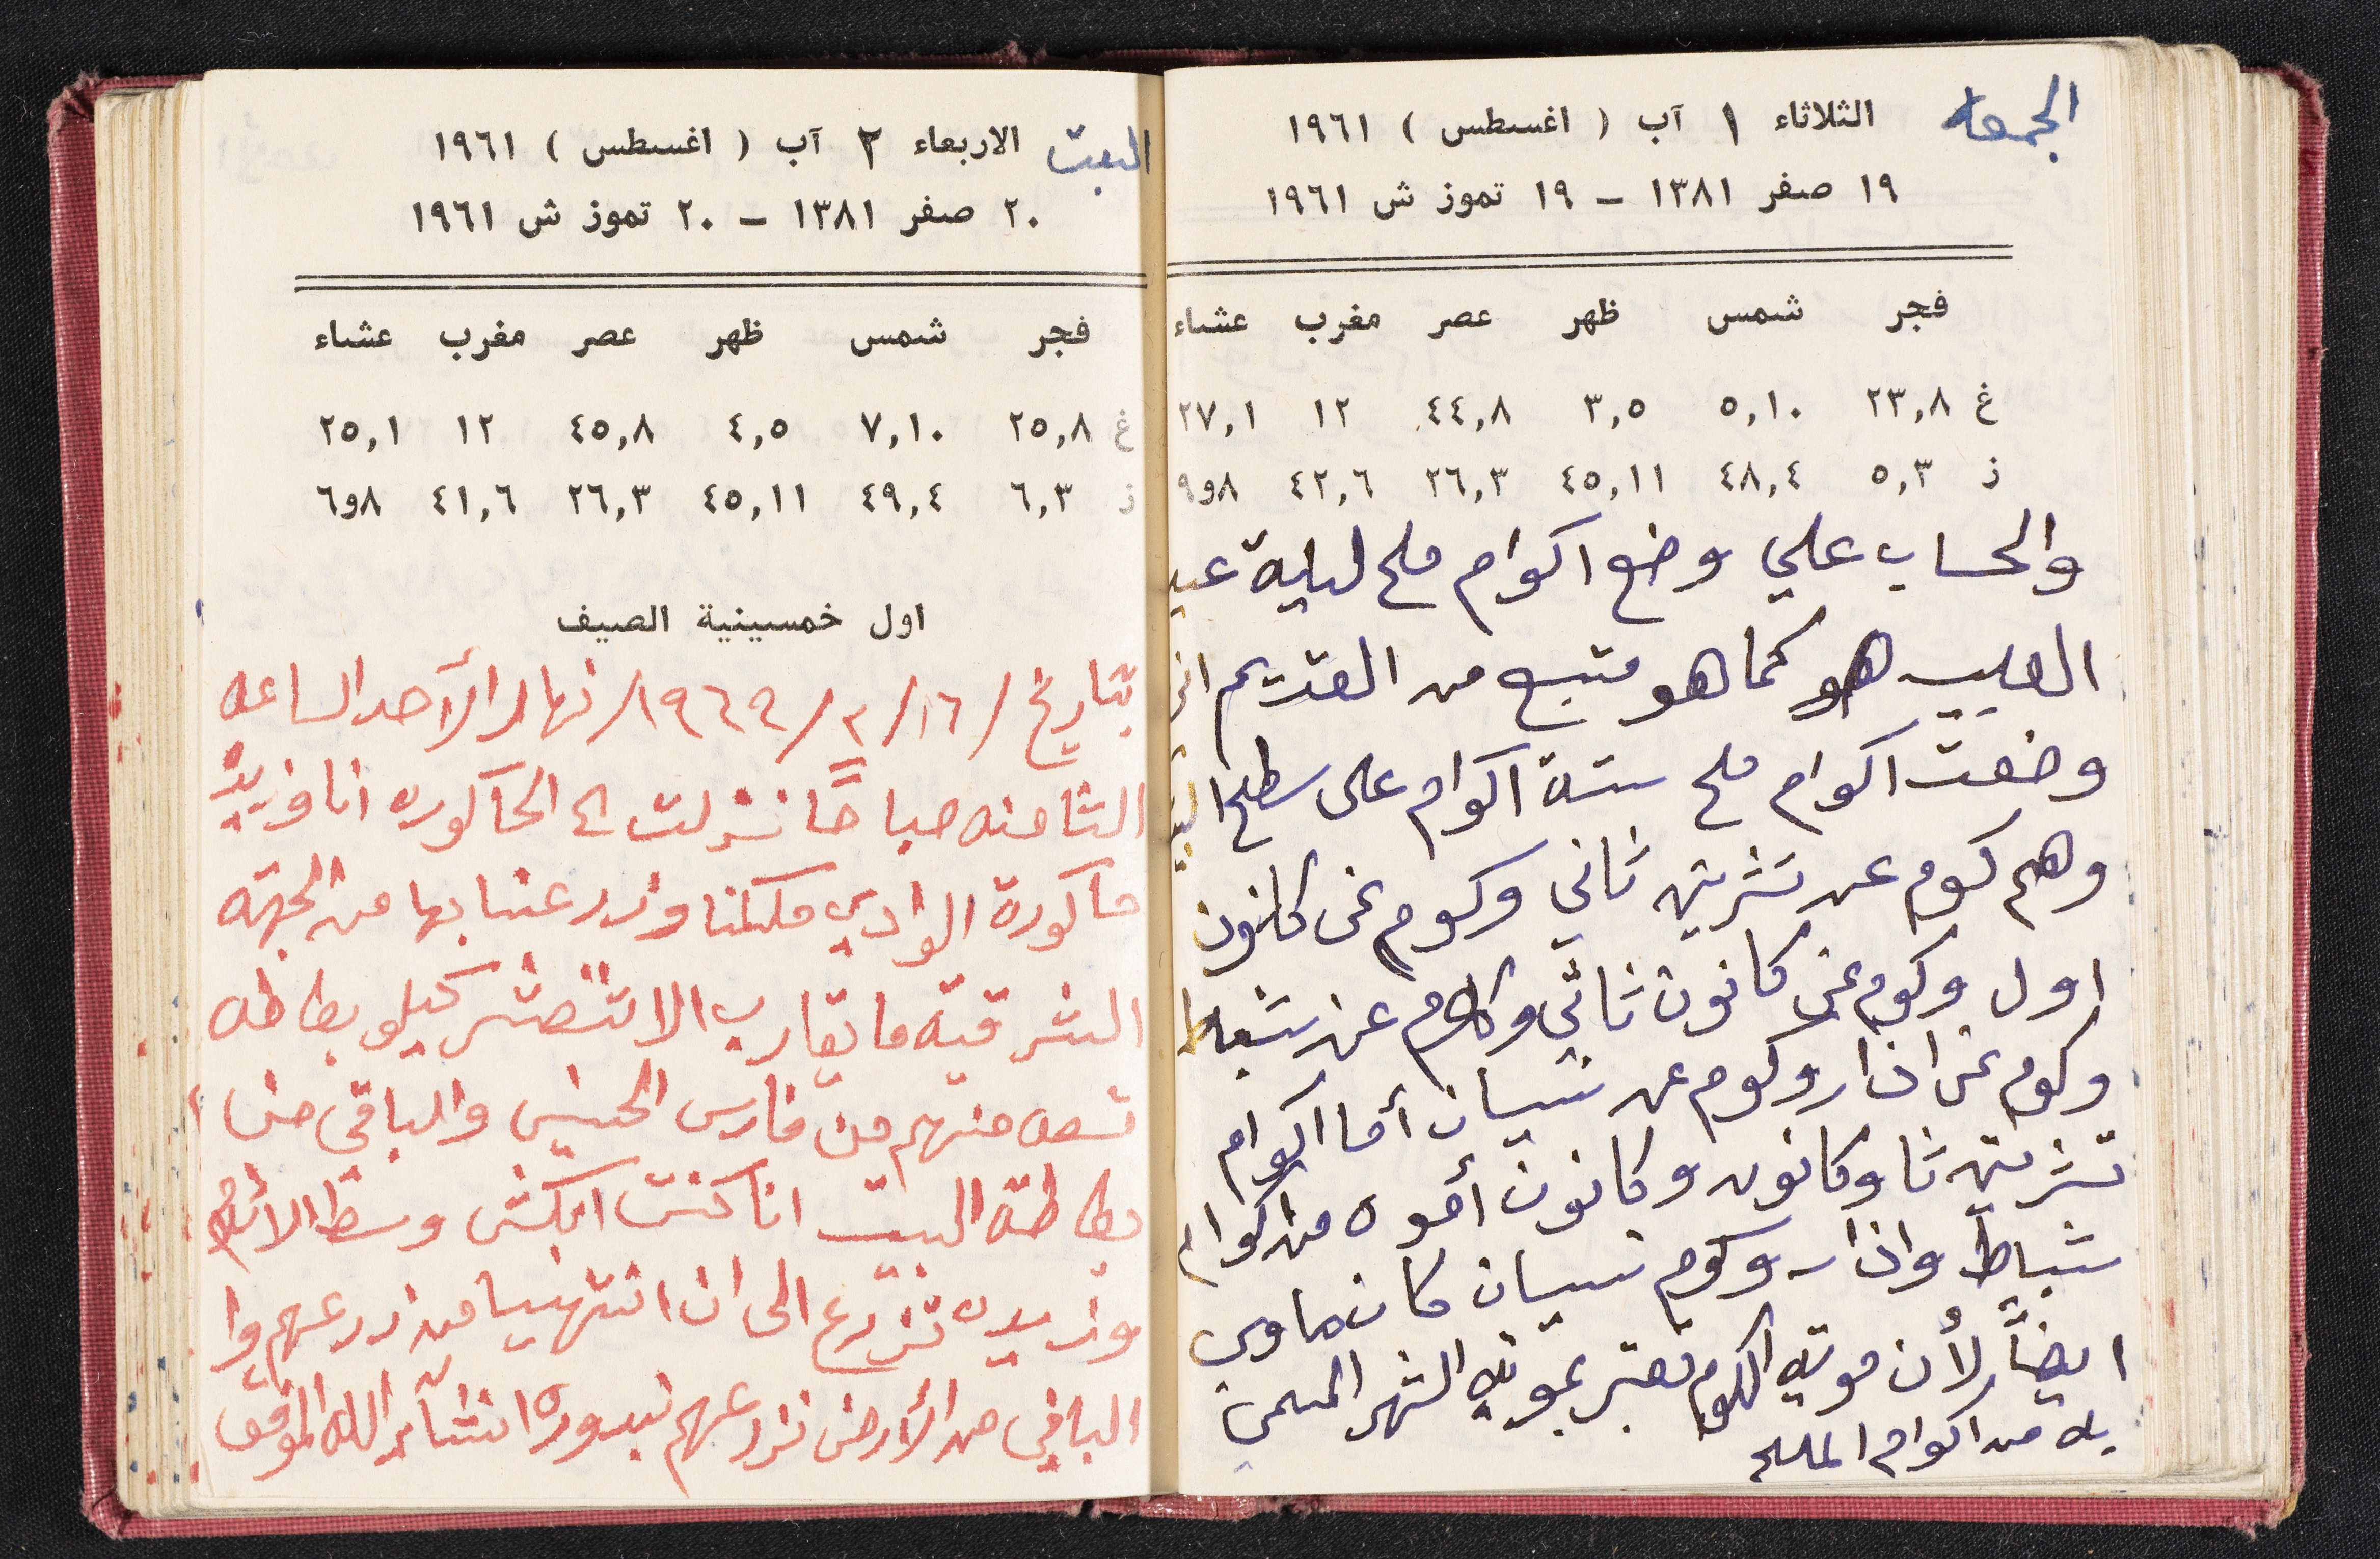 الجمعه
الثلاثاء ١ آب ( اغسطس ) ١٩٦١
١٩ صفر ١٣٨١ – ١٩ تموز ش ١٩٦١
فجر شمس ظهر عصر مغرب عشاء
غ ٢٣,٨ ٥,١٠ ٣,٥ ٤٤,٨ ١٢ ٢٧,١
ذ ٥,٣ ٤٨,٤ ٤٥,١١ ٢٦,٣ ٤٢,٦ ٨و٩
والحساب علي وضع اكوام ملح ليلة عيد
الصليب هو كما هو متبع من القديم
وضعت اكوام ملح ستة اكوام على سطح
وهم كوم عن تشرين ثاني وكوم عن كانون
اول وكوم عن كانون ثاني وكوم عن شباط
وكوم عن اذار وكوم عن نيسان أما اكوام
تشرين ثا وكانون وكانون أموه من اكوام
شباط واذار وكوم نيسان كان ماوي
ايضاً لأن موية الكوم تعتبر بموية الشهر المسمى
به من اكوام الملح
السبت
الاربعاء ٢ آب ( اغسطس ) ١٩٦١
٢٠ صفر ١٣٨١ – ٢٠ تموز ش ١٩٦١
فجر شمس ظهر عصر مغرب عشاء
غ ٢٥,٨ ٧,١٠ ٤,٥ ٤٥,٨ ١٢ ٢٥,١
ذ ٦,٣ ٤٩,٤ ٤٥,١١ ٢٦,٣ ٤١,٦ ٨و٦
اول خمسينية الصيف
بتاريخ /١٦/٣/١٩٦٩/ نهار الآحد الساعه
الثامنه صباحًا نزلت الى الحاكوره انا وزيد
حاكورة الوادي ملكنا وزرعنا بها من الجهة
الشرقية ما يقارب الاثنعشر كيلو بطاطه
تسعه منهم من فارس الحبيس والباقي من
بطاطة البيت انا كنت ابكش وسط الاتلام
وزيده تزرع الى ان انتهينا من زرعهم وا
الباقي من الأرض نزرعهم نبدوره انشآء الله الموفق